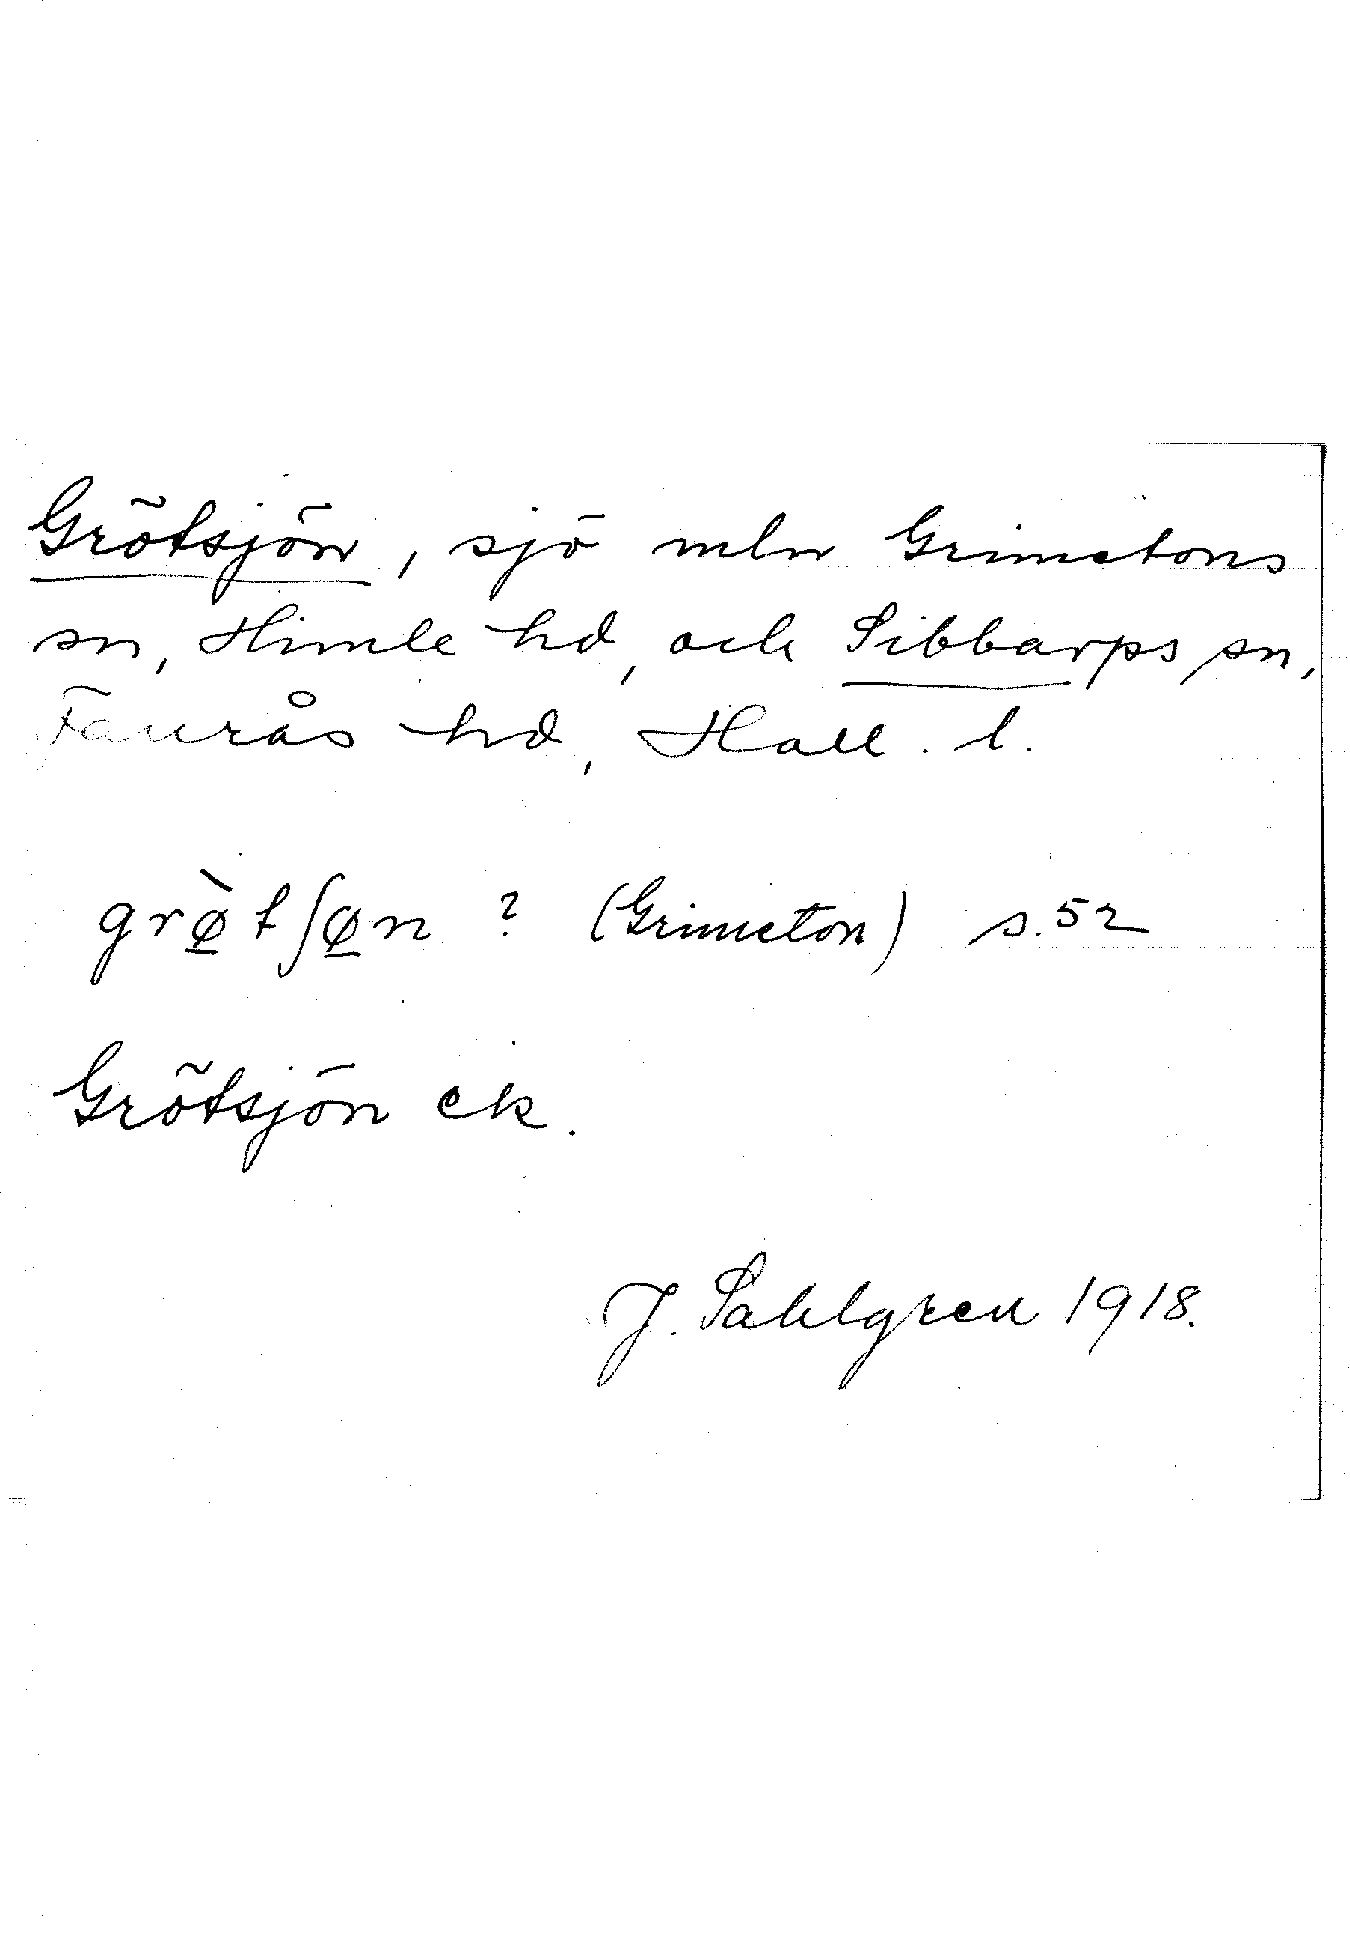 Grötsjön, sjö mln Grimetons
sn, Himle hd, och Sibbarps sn,
Faurås hd, Hall. l.
grø̲̀tʃø̲n ? (Grimeton) s. 52
Grötsjön ek.
J. Sahlgren 1918.